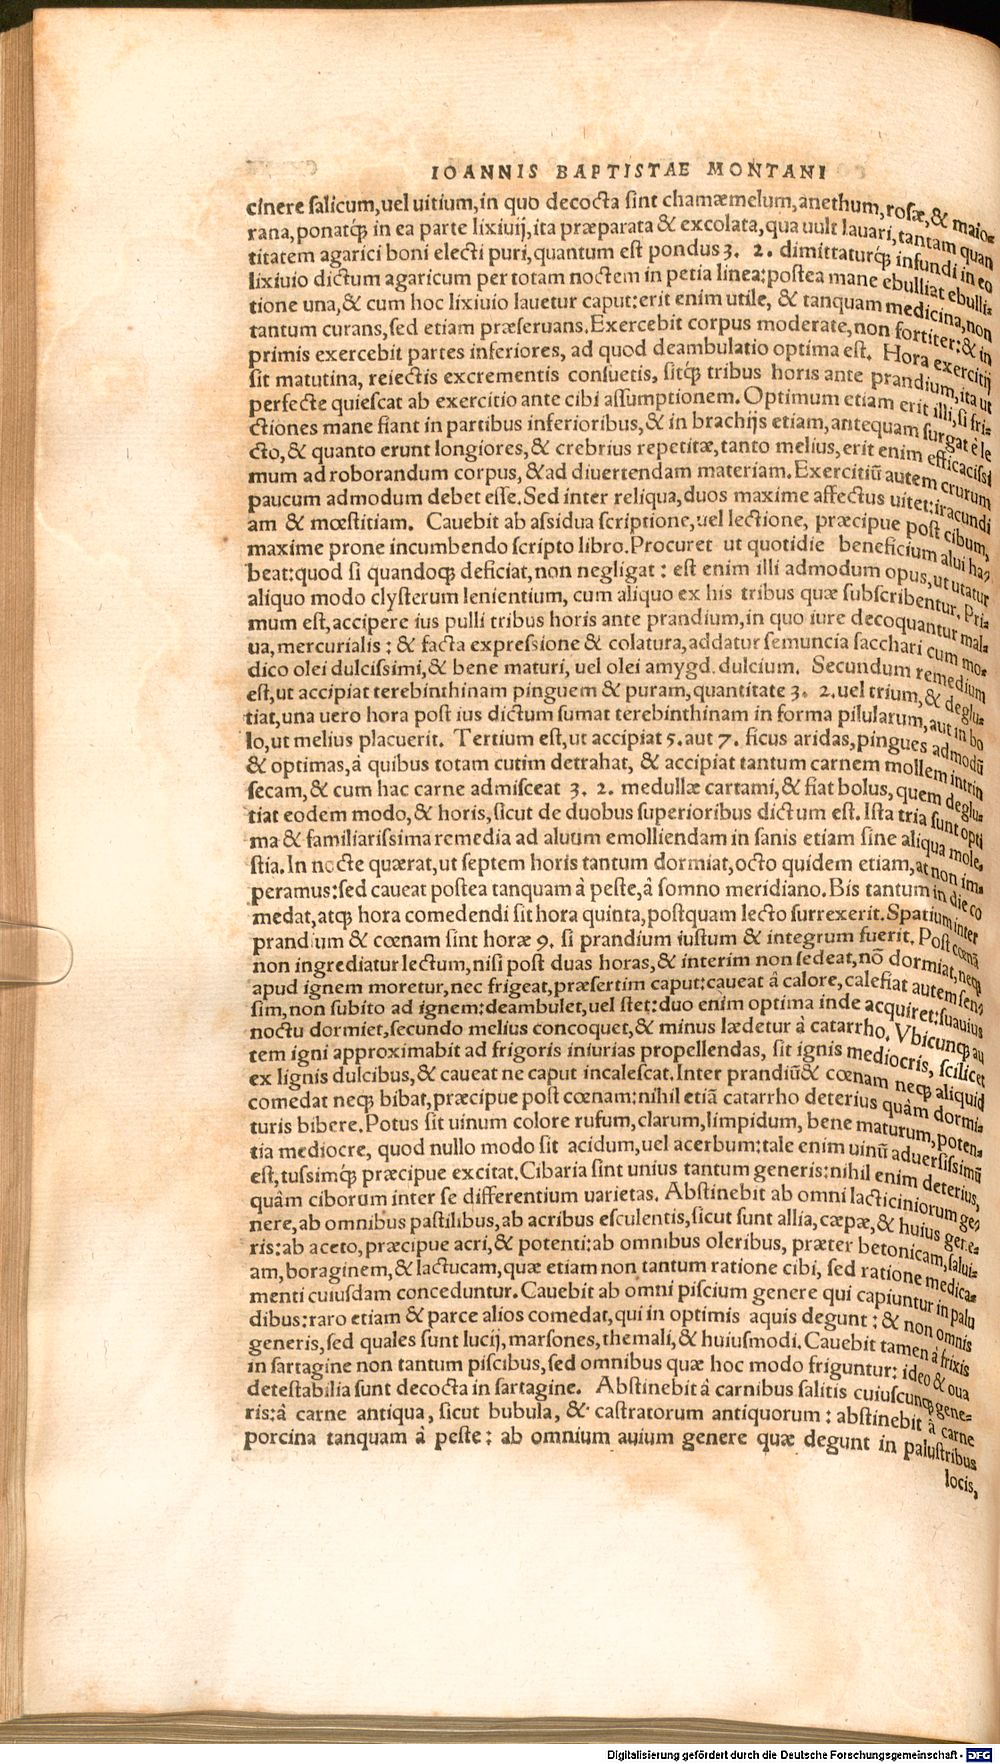 IOANNIS BAPTISTAE MONTANI
cinere salicum, uel uitium, in quo decocta sint chamæmelum, anethum, rosæ, & maio-
rana, ponatq́; in ea parte lixiuij, ita præparata & excolata, qua uult lauari, tantam quan
titatem agarici boni electi puri, quantum est pondus ʒ. 2. dimittaturq́; infundi in eo
lixiuio dictum agaricum per totam noctem in petia linea: postea mane ebulliat ebulli-
tione una, & cum hoc lixiuio lauetur caput: erit enim utile, & tanquam medicina, non
tantum curans, sed etiam præseruans. Exercebit corpus moderate, non fortiter: & in
primis exercebit partes inferiores, ad quod deambulatio optima est. Hora exercitij
sit matutina, reiectis excrementis consuetis, sitq́; tribus horis ante prandium, ita ut
perfecte quiescat ab exercitio ante cibi assumptionem. Optimum etiam erit illi, si fri-
ctiones mane fiant in partibus inferioribus, & in brachijs etiam, antequam surgat è le
cto, & quanto erunt longiores, & crebrius repetitæ, tanto melius, erit enim efficacissi
mum ad roborandum corpus, & ad diuertendam materiam. Exercitiū autem crurum
paucum admodum debet esse. Sed inter reliqua, duos maxime affectus uitet: iracundi
am & mœstitiam. Cauebit ab assidua scriptione, uel lectione, præcipue post cibum,
maxime prone incumbendo scripto libro. Procuret ut quotidie beneficium alui ha-
beat: quod si quandoq; deficiat, non negligat: est enim illi admodum opus, ut utatur
aliquo modo clysterum lenientium, cum aliquo ex his tribus quæ subscribentur. Pri-
mum est, accipere ius pulli tribus horis ante prandium, in quo iure decoquantur mal-
ua, mercurialis: & facta expressione & colatura, addatur semuncia sacchari cum mo-
dico olei dulcissimi, & bene maturi, uel olei amygd. dulcium. Secundum remedium
est, ut accipiat terebinthinam pinguem & puram, quantitate ʒ. 2. uel trium, & deglu-
tiat, una uero hora post ius dictum sumat terebinthinam in forma pilularum, aut in bo
lo, ut melius placuerit. Tertium est, ut accipiat 5. aut 7. ficus aridas, pingues admodū
& optimas, à quibus totam cutim detrahat, & accipiat tantum carnem mollem intrin
secam, & cum hac carne admisceat ʒ. 2. medullæ cartami, & fiat bolus, quem deglu-
tiat eodem modo, & horis, sicut de duobus superioribus dictum est. Ista tria sunt opti
ma & familiarissima remedia ad aluum emolliendam in sanis etiam sine aliqua mole-
stia. In nocte quærat, ut septem horis tantum dormiat, octo quidem etiam, at non im-
peramus: sed caueat postea tanquam à peste, à somno meridiano. Bis tantum in die co
medat, atq; hora comedendi sit hora quinta, postquam lecto surrexerit. Spatium inter
prandium & cœnam sint horæ 9. si prandium iustum & integrum fuerit. Post cœnā
non ingrediatur lectum, nisi post duas horas, & interim non sedeat, nō dormiat, neq;
apud ignem moretur, nec frigeat, præsertim caput: caueat à calore, calefiat autem sen-
sim, non subito ad ignem: deambulet, uel stet: duo enim optima inde acquiret: suauius
noctu dormiet, secundo melius concoquet, & minus lædetur à catarrho. Vbicunq; au
tem igni approximabit ad frigoris iniurias propellendas, sit ignis mediocris, scilicet
ex lignis dulcibus, & caueat ne caput incalescat. Inter prandiū & cœnam neq; aliquid
comedat neq; bibat, præcipue post cœnam: nihil etiā catarrho deterius quàm dormi-
turis bibere. Potus sit uinum colore rufum, clarum, limpidum, bene maturum, poten-
tia mediocre, quod nullo modo sit acidum, uel acerbum: tale enim uinū aduersissimū
est, tussimq́; præcipue excitat. Cibaria sint unius tantum generis: nihil enim deterius,
quàm ciborum inter se differentium uarietas. Abstinebit ab omni lacticiniorum ge-
nere, ab omnibus pastilibus, ab acribus esculentis, sicut sunt allia, cæpæ, & huius gene-
ris: ab aceto, præcipue acri, & potenti: ab omnibus oleribus, præter betonicam, salui-
am, boraginem, & lactucam, quæ etiam non tantum ratione cibi, sed ratione medica-
menti cuiusdam conceduntur. Cauebit ab omni piscium genere qui capiuntur in palu
dibus: raro etiam & parce alios comedat, qui in optimis aquis degunt: & non omnis
generis, sed quales sunt lucij, marsones, themali, & huiusmodi. Cauebit tamen à frixis
in sartagine non tantum piscibus, sed omnibus quæ hoc modo friguntur: ideo & oua
detestabilia sunt decocta in sartagine. Abstinebit à carnibus salitis cuiuscunq; gene-
ris: à carne antiqua, sicut bubula, & castratorum antiquorum: abstinebit à carne
porcina tanquam à peste: ab omnium auium genere quæ degunt in palustribus
locis,
Digitalisierung gefördert durch die Deutsche Forschungsgemeinschaft - DFG